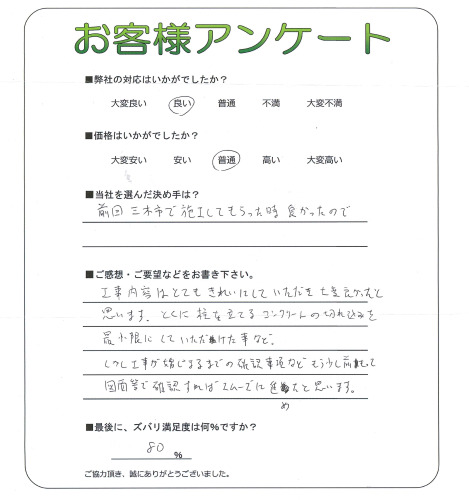 お客様アンケート
■弊社の対応はいかがでしたか？
大変良い 良い 普通 不満 大変不満
■価格はいかがでしたか？
大変安い 安い 普通 高い 大変高い
■当社を選んだ決め手は？
前回三木市で施工してもらった時良かったので
■ご感想・ご要望などをお書き下さい。
工事内容はとてもきれいにしていただき大変良かったと
思います。とくに柱を立てるコンクリートの切れ込みを
最小限にしていただけた事など。
しかし工事が始じまるまでの確認事項などもう少し前もって
図面等で確認すればスムーズに進めたと思います。
■最後に、ズバリ満足度は何%ですか？
80 %
ご協力頂き、誠にありがとうございました。